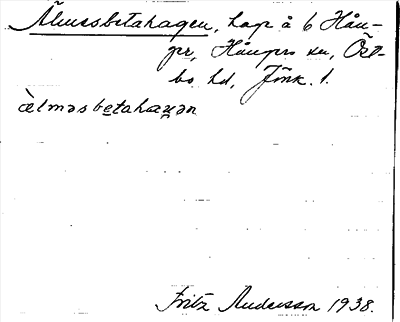 Älmesbetahagen, hage å 6 Hån-
ger, Hångers sn, Öst-
bo hd, Jönk. l.
æ̀lməsbetahaɡən
Fritz Andersson 1938.